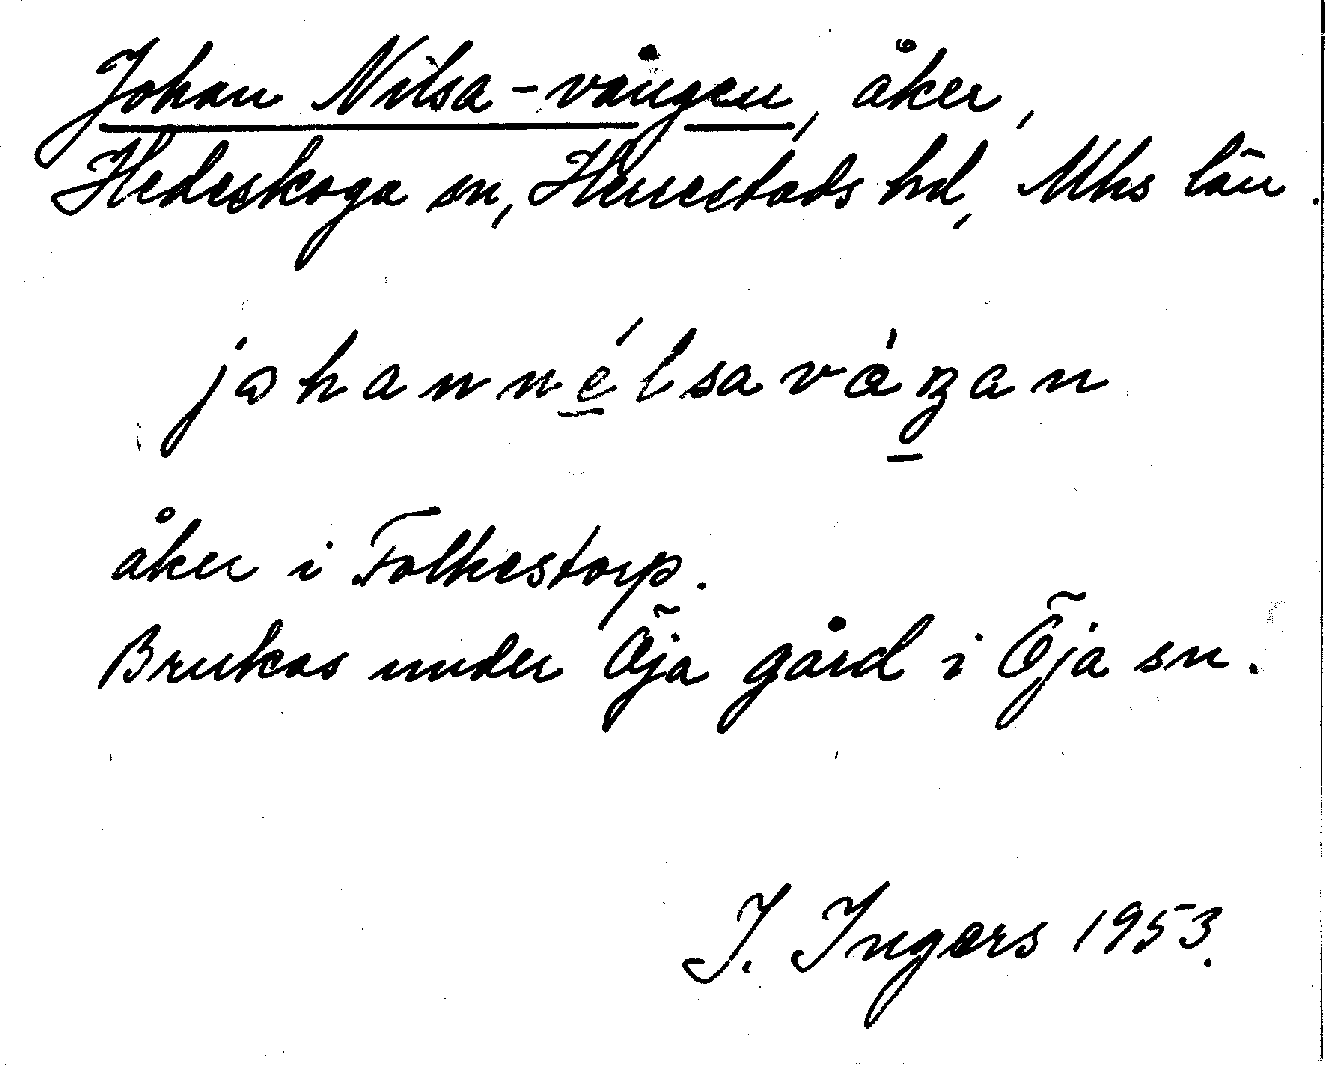 Johan Nilsa-vången, åker,
Hedeskoga sn, Herrestads hd, Mhs län.
johannélsaváŋan
åker i Folkestorp.
Brukas under Öja gård i Öja sn.
I. Ingers 1953.